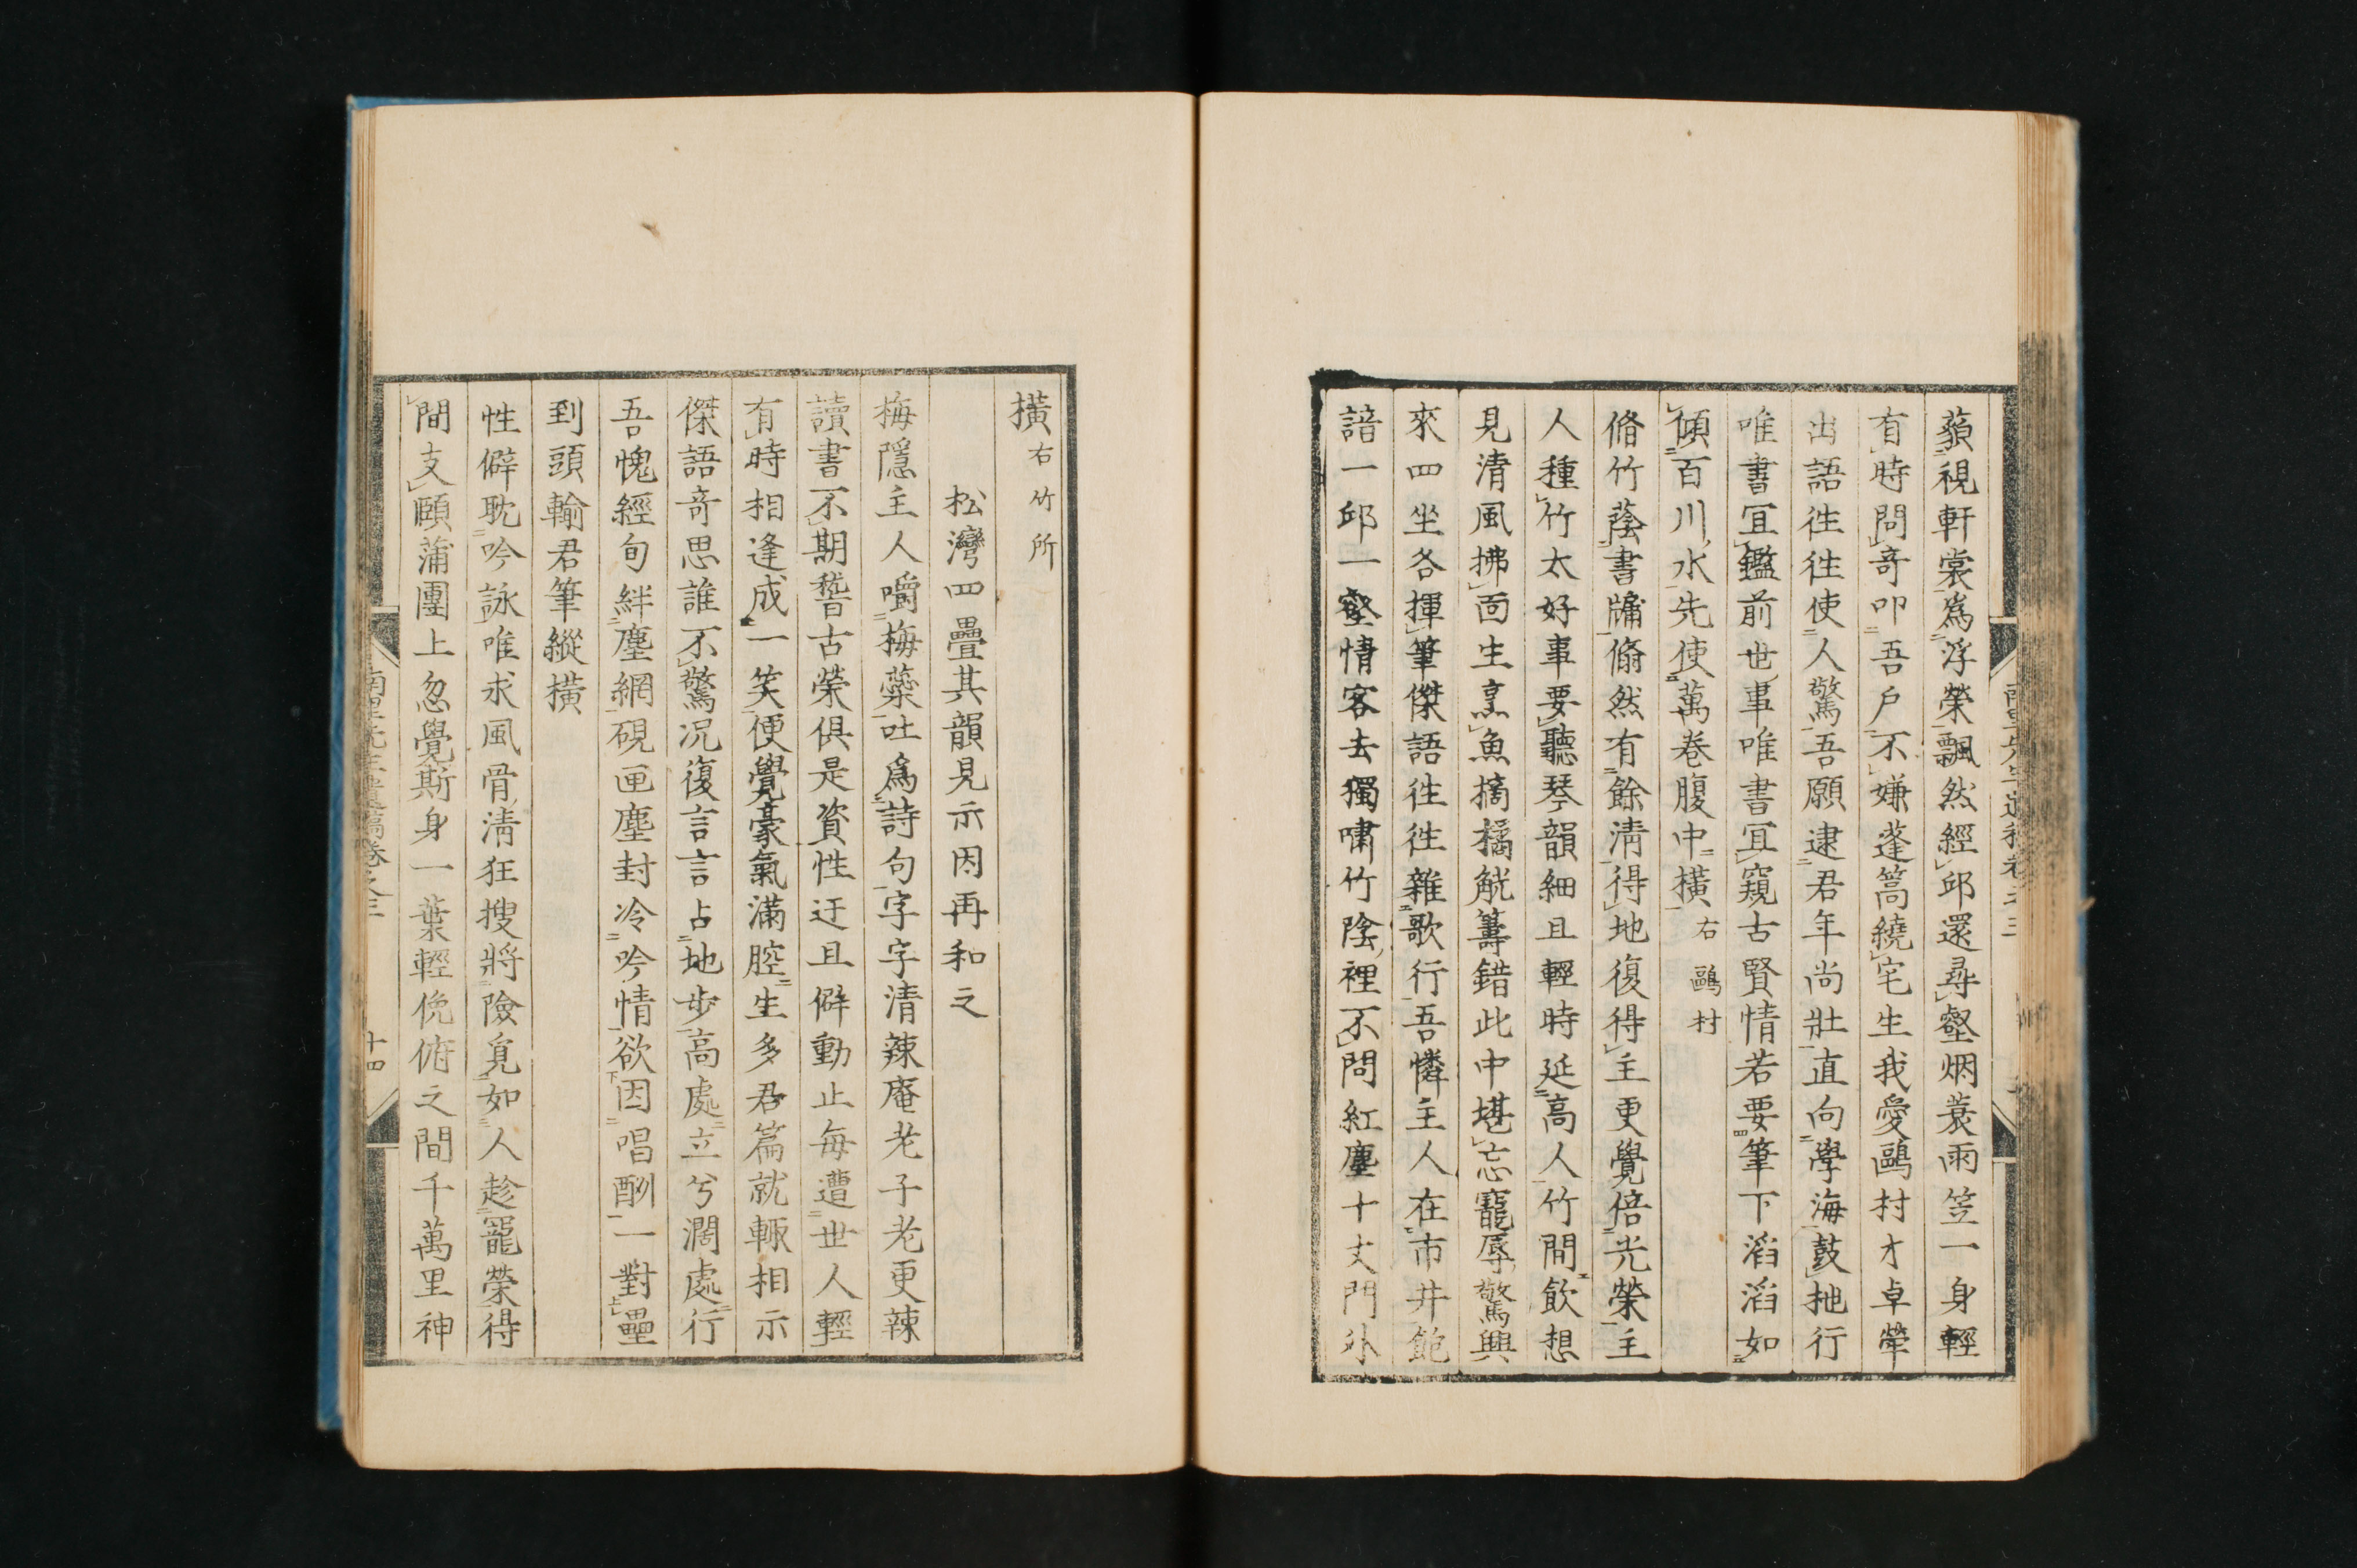 藐視軒裳爲浮榮飄然經邱還尋壑烟蓑雨笠一身輕
有時問奇叩吾戶不嫌蓬篙繞宅生我愛鷗村才卓犖
出語往往使人驚吾願逮君年尚壯直向學海鼓拖行
唯書冝鑑前世事唯書冝窺古賢情若要筆下滔滔如
傾百川水先使萬卷腹中橫右鷗村
脩竹蔭書牖翛然有餘淸得地復得主更覺倍光榮主
人種竹太好事要聽琴韻細且輕時延高人竹間飲想
見清風拂面生烹魚摘橘觥籌錯此中堪忘寵辱驚興
來四坐各揮筆傑語往往雜歌行吾憐主人在市井飽
諳一邱一壑情客去獨嘯竹陰裡不問紅塵十丈門外
橫右竹所
松灣四疊其韻見示因再和之
梅隱主人嚼梅蘂吐爲詩句字字清辣庵老子老更辣
讀書不期稽古榮俱是資性迂且僻動止每遭世人輕
有時相逢成一笑便覺豪氣滿腔生多君篇就輒相示
傑語奇思誰不驚況復言言占地步高處立兮濶處行
吾愧經旬絆塵網硯匣塵封冷吟情欲因唱酬一對壘
到頭輸君筆縱橫
性僻耽吟詠唯求風骨淸狂搜將險覓如人趁寵榮得
間支頤蒲團上忽覺斯身一葉輕俛俯之間千萬里神
十四